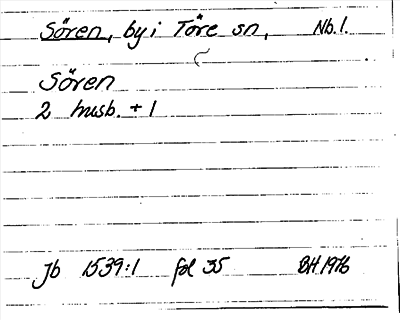 Sören, by i Töre sn, Nb.l.
Sören
2 husb. + 1
Jb 1539:1 fol 35 BH 1976